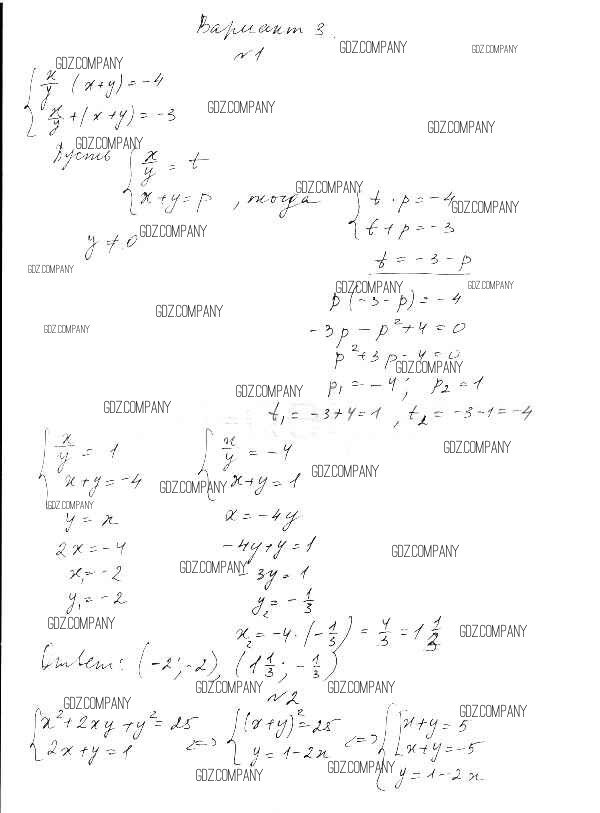 Вариант 3.
GDZ.COMPANY GDZ.COMPANY
№1
GDZ.COMPANY
x/y (x+y) = -4
GDZ.COMPANY
x/y + (x+y) = -3
GDZ.COMPANY
GDZ.COMPANY
Пусть { x/y = t
GDZ.COMPANY
x+y = p, тогда { t · p = -4
GDZ.COMPANY
t + p = -3
y ≠ 0 GDZ.COMPANY
t = -3 - p
GDZ.COMPANY
GDZ.COMPANY GDZ.COMPANY
p(-3-p) = -4
GDZ.COMPANY
GDZ.COMPANY
-3p - p² + 4 = 0
p² + 3p - 4 = 0
GDZ.COMPANY
p₁ = -4; p₂ = 1
GDZ.COMPANY
GDZ.COMPANY
t₁ = -3+4 = 1, t₂ = -3-1 = -4
{ x/y = 1 { x/y = -4
GDZ.COMPANY
GDZ.COMPANY
x+y = -4 x+y = 1
GDZ.COMPANY
GDZ.COMPANY
y = x x = -4y
2x = -4 -4y+y = 1
GDZ.COMPANY
x₁ = -2 -3y = 1
GDZ.COMPANY
y₁ = -2 y₂ = -1/3
GDZ.COMPANY
x₂ = -4·(-1/3) = 4/3 = 1 1/3
GDZ.COMPANY
Ответ: (-2; -2), (1 1/3; -1/3)
GDZ.COMPANY GDZ.COMPANY
№2
GDZ.COMPANY GDZ.COMPANY
{ x²+2xy+y² = 25 <=> { (x+y)² = 25 <=> { [ x+y = 5
2x+y = 1 y = 1-2x x+y = -5
y = 1-2x
GDZ.COMPANY GDZ.COMPANY